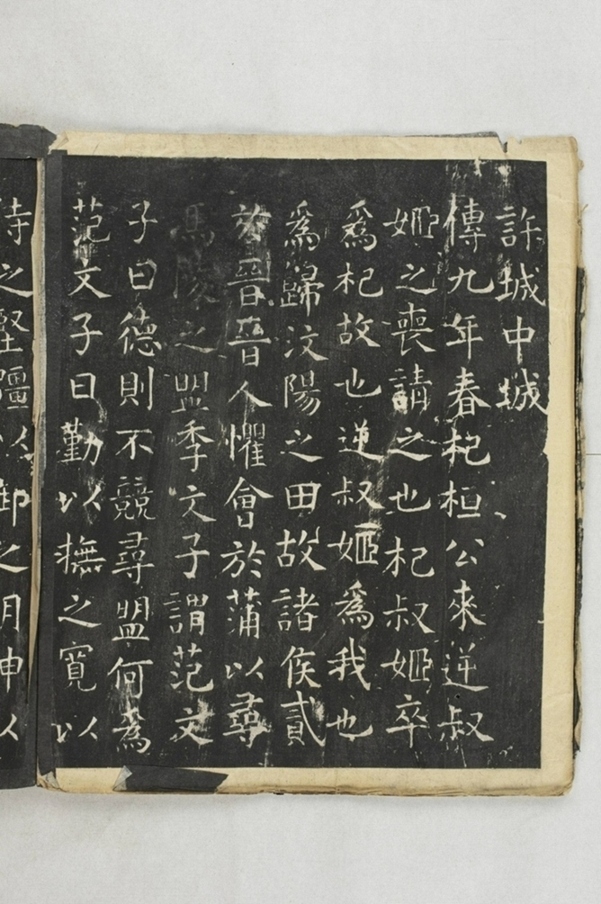 許城中城
傳九年春杞桓公來逆叔
姬之喪請之也杞叔姬卒
爲杞故也逆叔姬爲我也
爲歸汶陽之田故諸侯貳
於晉晉人懼會於蒲以尋
馬陵之盟季文子謂范文
子曰德則不競尋盟何為
范文子曰勤以撫之寬以
待之堅疆以御之明神以